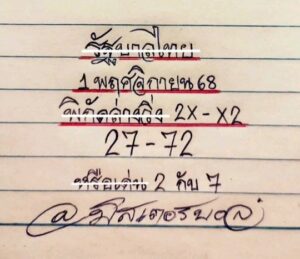 รัฐบาลไทย
1 พฤศจิกายน 68
พิกัดล่างวิ่ง 2x - x2
27 - 72
หรือเด่น 2 กับ 7
@มิสเตอร์บอล